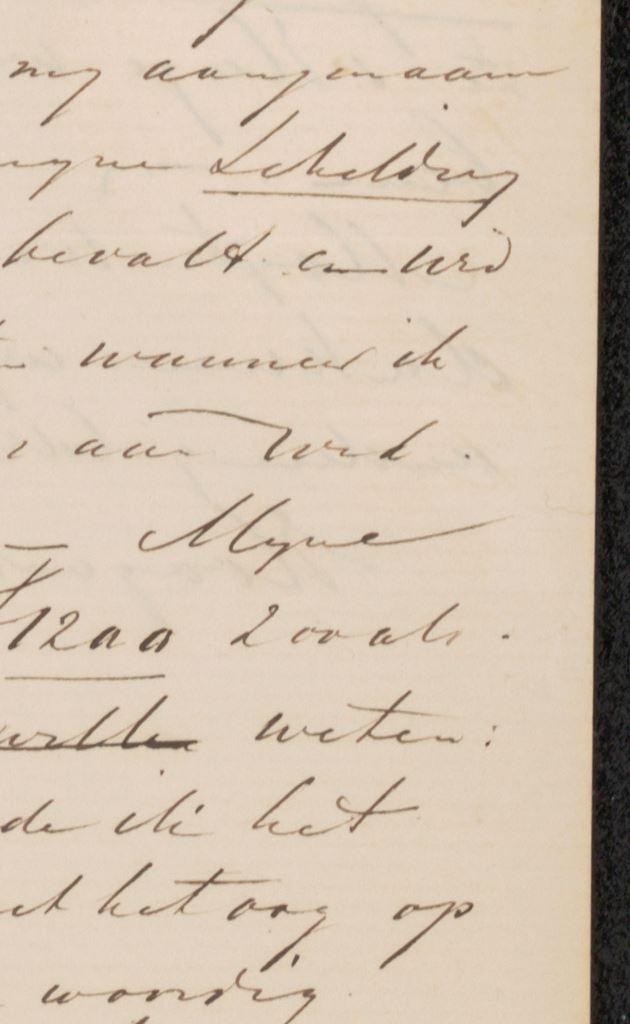 my aangenaam
myne Schildery
bevalt en wed
wanneer ik
aan wed.
— Myne
f1200 zooals.
willen weten:
de ik het
het oog op
waardig